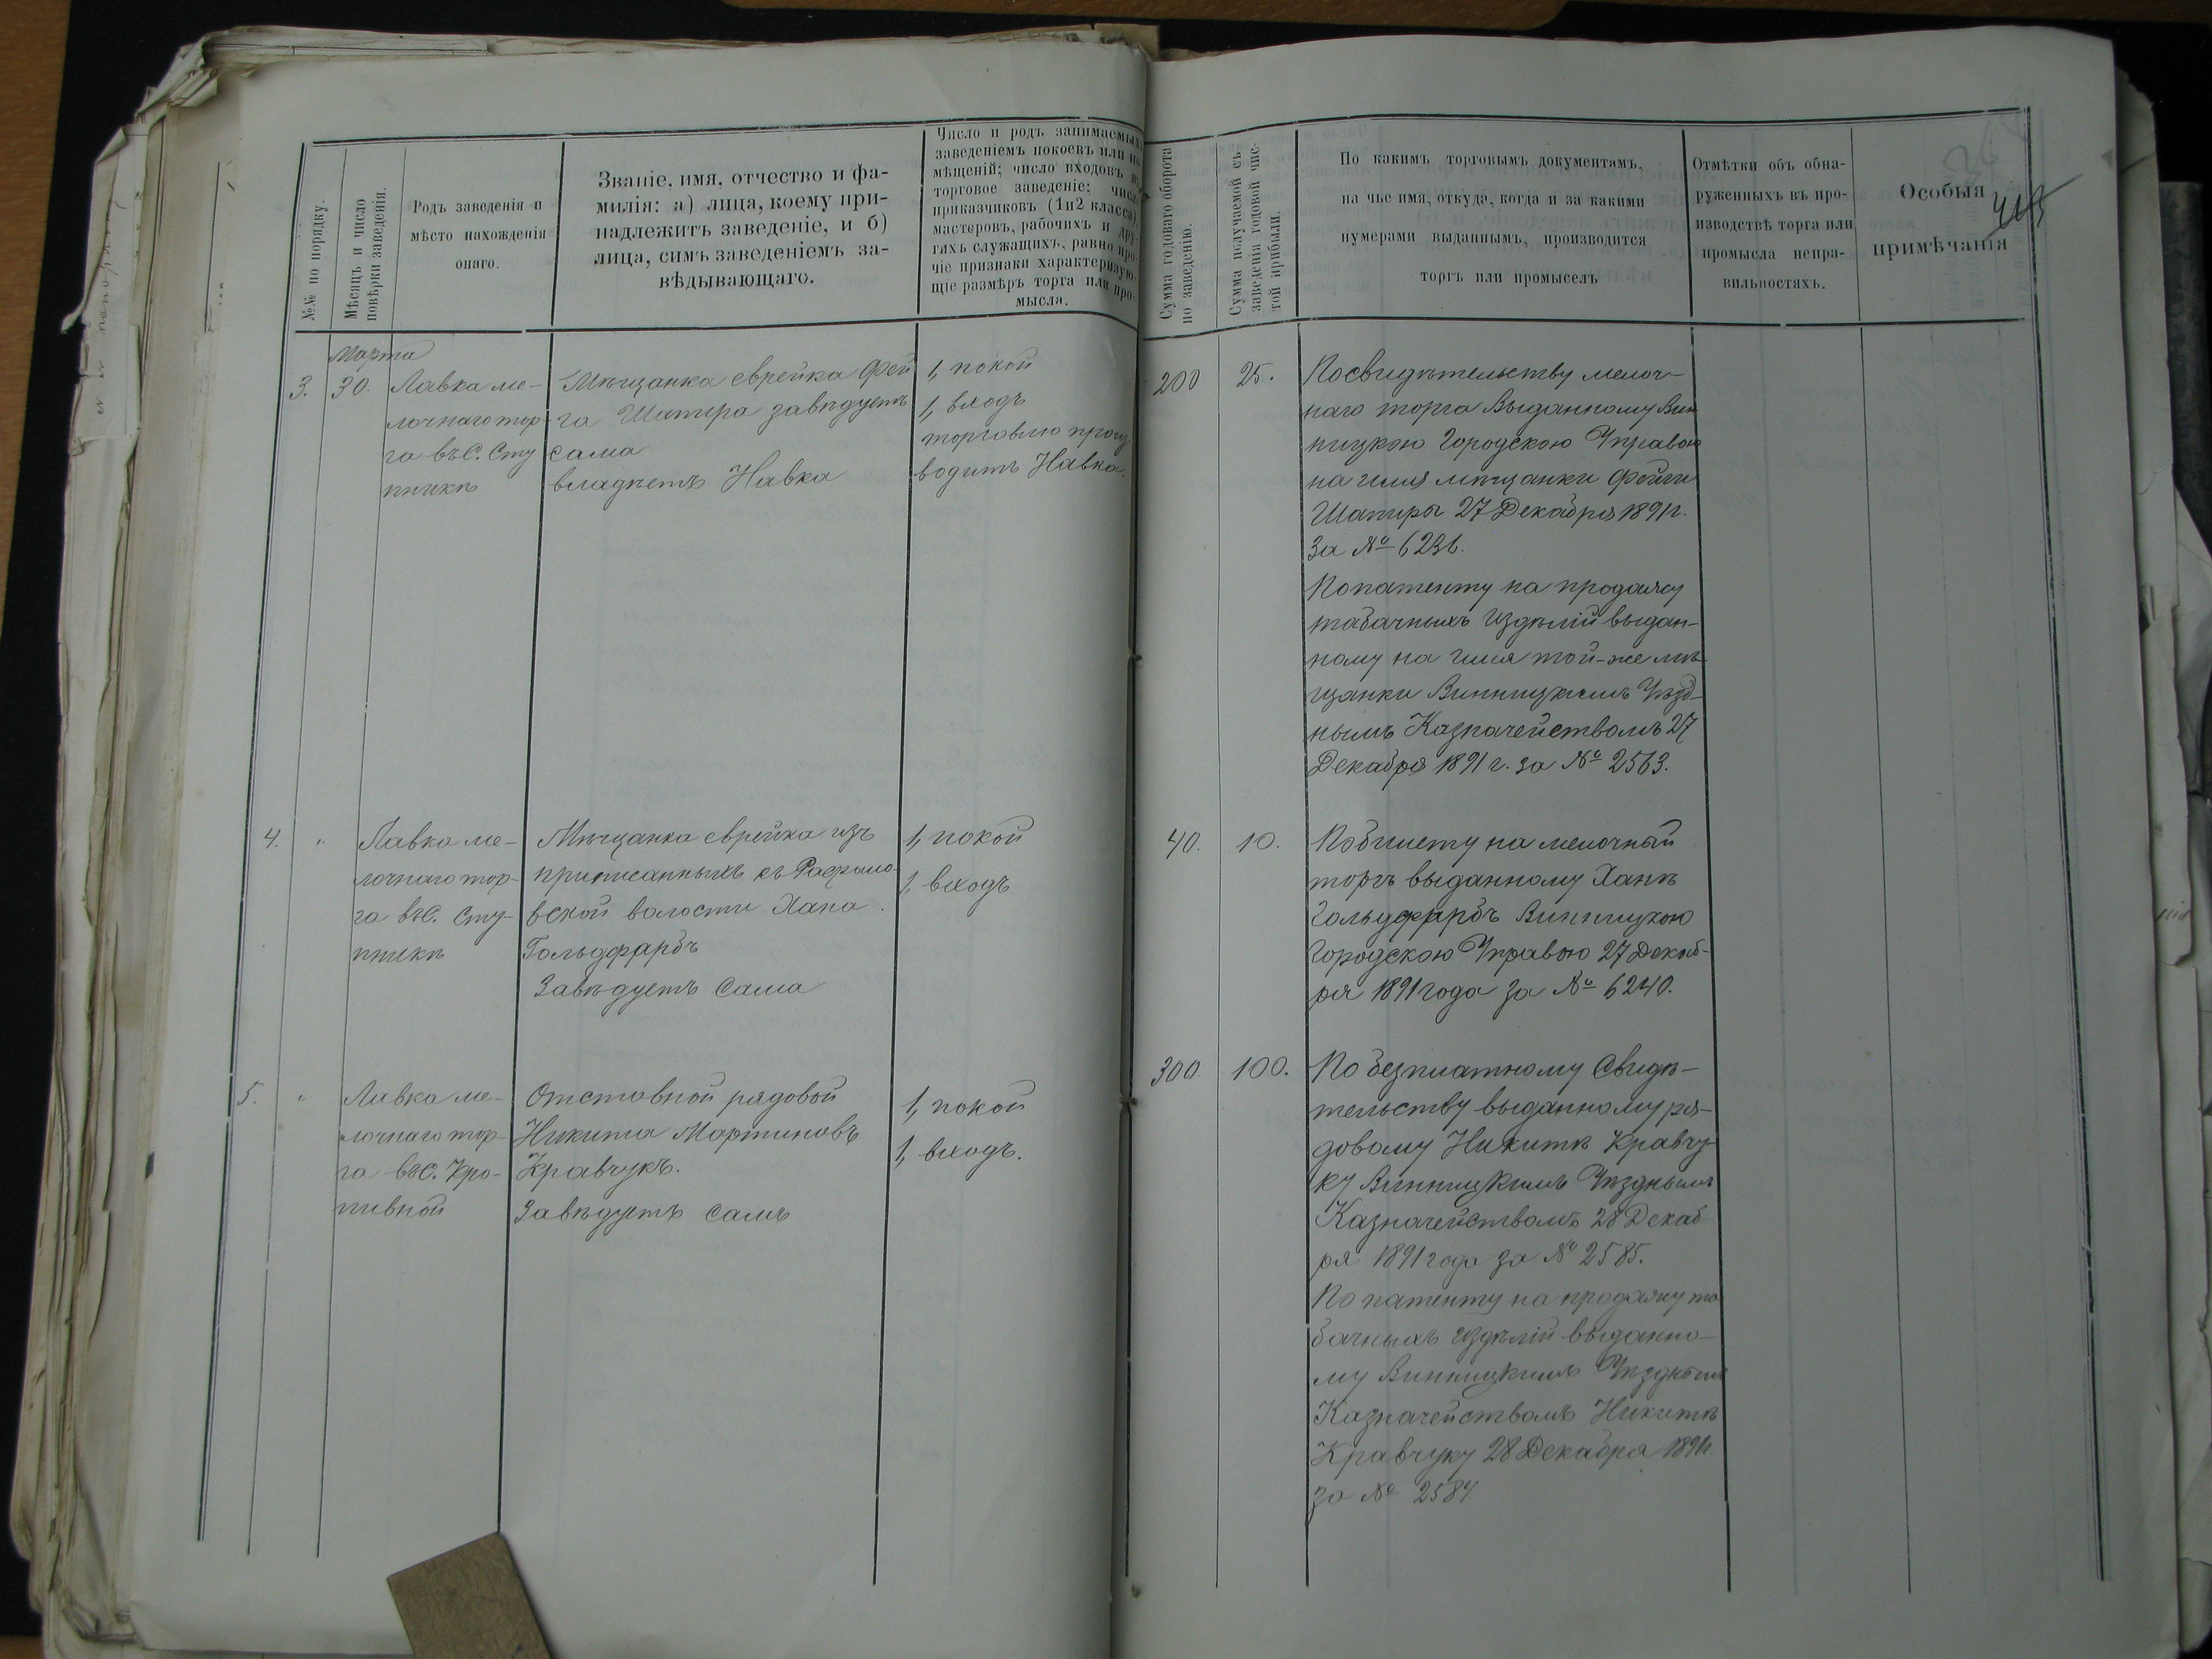 №№ по порядку.
Мѣсяцъ и число
повѣрки заведенія.
Родъ заведенія и
мѣсто нахожденія
онаго.
Званіе, имя, отчество и фа-
милія: а) лица, коему при-
надлежитъ заведеніе, и б)
лица, симъ заведеніемъ за-
вѣдывающаго.
Число и родъ занимаемыхъ
заведеніемъ покоевъ или по-
мѣщеній; число входовъ въ
торговое заведеніе; число
приказчиковъ (1 и 2 класса)
мастеровъ, рабочихъ и дру-
гихъ служащихъ, равно про-
чіе признаки характеризую-
щіе размѣръ торга или про-
мысла.
Сумма годоваго оборота
по заведенію.
Сумма получаемой съ
заведенія годовой чис-
той прибыли.
По какимъ торговымъ документамъ,
на чье имя, откуда, когда и за какими
нумерами выданнымъ, производится
торгъ или промыселъ
Отмѣтки объ обна-
руженныхъ въ про-
изводствѣ торга или
промысла непра-
вильностяхъ.
Особыя
примѣчанія
Марта
3.
30.
Лавка ме-
лочнаго тор-
га въ с. Сту
пникѣ
Мѣщанка еврейка Фей
га Шапира завѣдуетъ
сама
владѣетъ Навка
1, покой
1, входъ
торговлю произ
водитъ Навка.
200
25.
По свидѣтельству мелоч-
наго торга Выданному Вин
ницкою Городскою Управою
на имя мѣщанки Фейги
Шапиры 27 Декабря 1891 г.
За №
По патенту на продажу
табачныхъ Издѣлій выдан-
ному на имя той-же мѣ-
щанки Винницкимъ Уѣзд-
нымъ Казначействомъ 27
Декабря 1891 г. за № 2563.
4.
"
Лавка ме-
лочнаго тор-
га въ с. Сту-
пникѣ
Мѣщанка еврейка изъ
приписанныхъ къ
вской волости Хана
Гольдфарбъ
Завѣдуетъ Сама
1, покой
1, входъ
40.
10.
По билету на мелочный
торгъ выданному Ханѣ
Гольдфарбъ Винницкою
Городскою Управою 27 Декаб-
ря 1891 года за № 6240.
5.
"
Лавка ме-
лочнаго тор-
га въ с. Кро-
пивной
Отставной рядовой
Никита Мартиновъ
Кравчукъ.
Завѣдуетъ самъ
1, покой
1, входъ.
300.
100.
По безплатному Свидѣ-
тельству выданному ря-
довому Никитѣ Кравчу-
ку Винницкимъ Уѣзднымъ
Казначействомъ 28 Декаб
ря 1891 года за № 2585.
По патенту на продажу та
бачныхъ издѣлій выданно-
му Винницкимъ Уѣзднымъ
Казначействомъ Никитѣ
Кравчуку 28 Декабря 1891 г.
за № 2584.